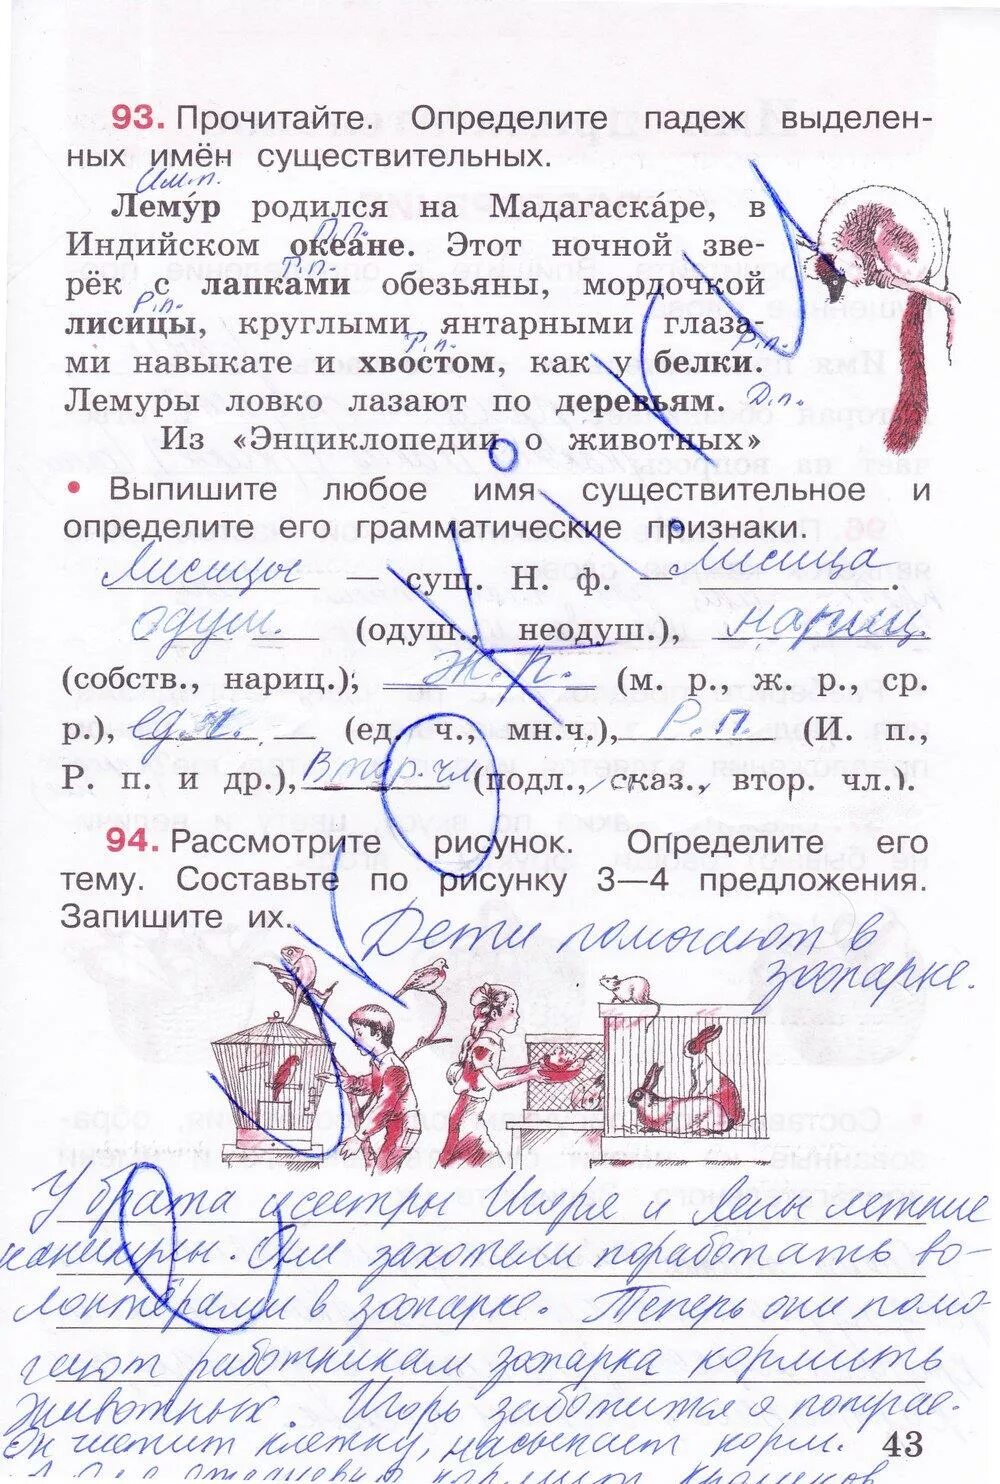 93. Прочитайте. Определите падеж выделен-
ных имён существительных.
Им.п.
Лему́р родился на Мадагаска́ре, в
П.п.
Индийском океане. Этот ночной зве-
Т.п.
рёк с лапками обезьяны, мордочкой
Р.п.
лисицы, круглыми янтарными глаза-
Т.п. Р.п.
ми навыкате и хвостом, как у белки.
Лемуры ловко лазают по деревьям. Д.п.
Из «Энциклопедии о животных»
• Выпишите любое имя существительное и
определите его грамматические признаки.
Лисицы — сущ. Н. ф. — лисица.
одуш. (одуш., неодуш.), нариц.
(собств., нариц.); ж.р. (м. р., ж. р., ср.
р.), ед.ч. (ед. ч., мн.ч.), Р.п. (И. п.,
Р. п. и др.), Втор.чл. (подл., сказ., втор. чл.).
94. Рассмотрите рисунок. Определите его
тему. Составьте по рисунку 3—4 предложения.
Запишите их. Дети помогают в
зоопарке.
У брата и сестры Игоря и Лены летние
каникулы. Они захотели поработать во-
лонтёрами в зоопарке. Теперь они помо-
гают работникам зоопарка кормить
животных. Игорь заботится о попугае.
Он чистит клетку, насыпает корм. 43
кормит кроликов